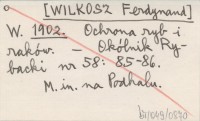 [WILKOSZ Ferdynand]
W. 1902. Ochrona ryb i
raków. – Okólnik Ry-
backi nr 58: 85-86.
M. in. na Podhalu.